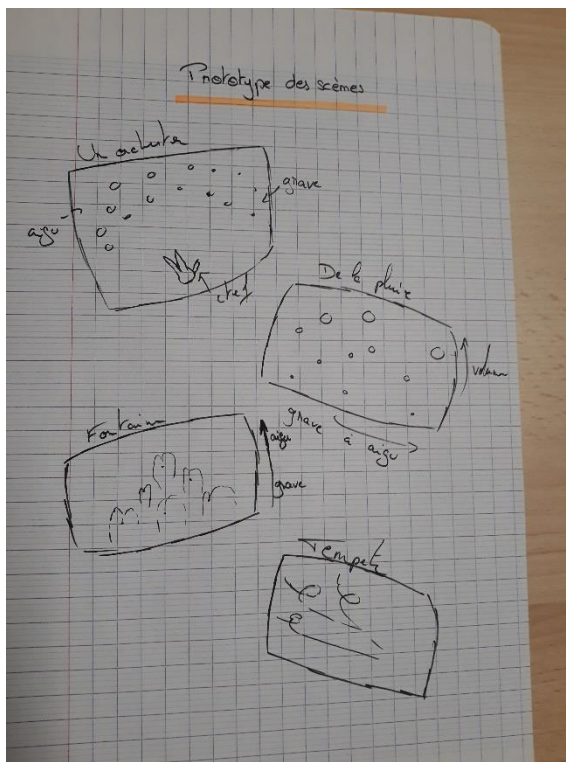 Prototype des scèmes
Un
aigu
grave
chef
De la pluie
volum
grave
à aigu
Fontain
aigu
grave
Tempete